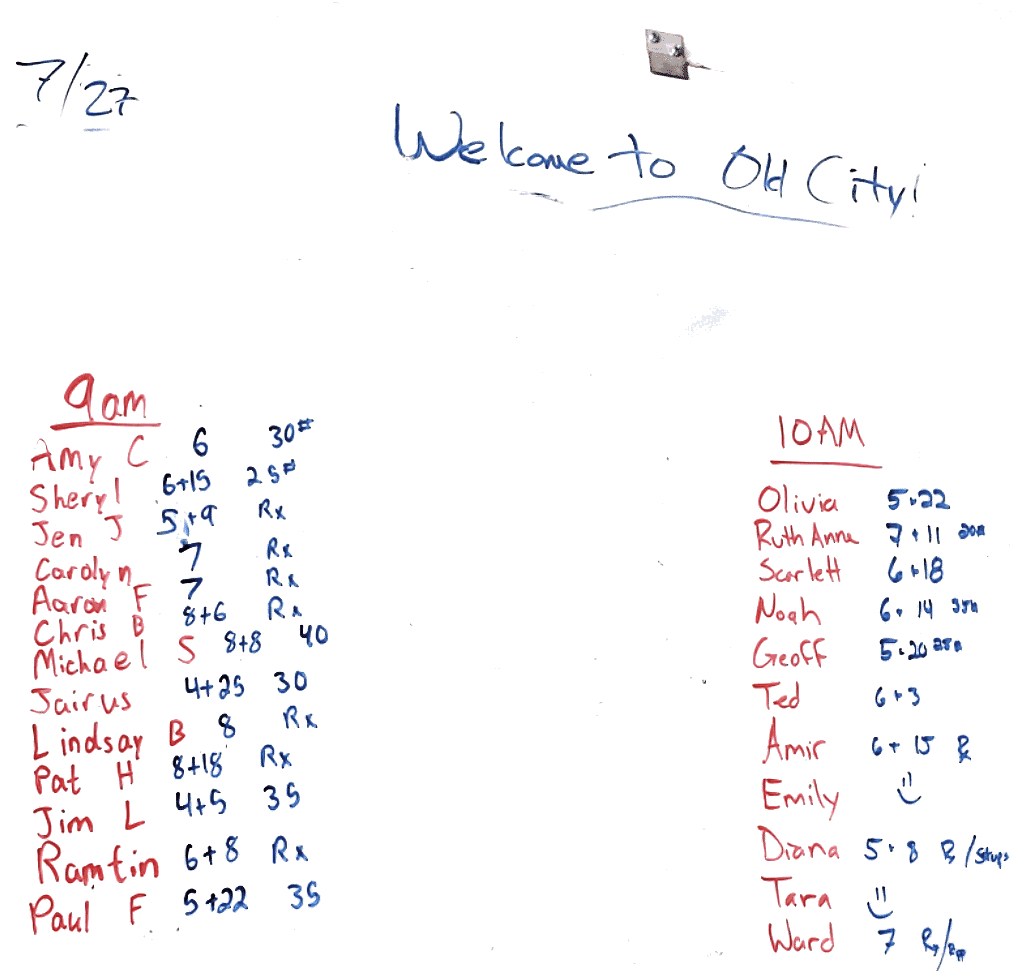 7/27
Welcome to Old City!
9am
Amy C 6 30#
Sheryl 6+15 25#
Jen J 5+9 Rx
Carolyn 7 Rx
Aaron F 7 Rx
Chris B 8+6 Rx
Michael S 8+8 40
Jairus 4+25 30
Lindsay B 8 Rx
Pat H 8+18 Rx
Jim L 4+5 35
Ramtin 6+8 Rx
Paul F 5+22 35
10AM
Olivia 5+22
Ruth Anne 7+11 20#
Scarlett 6+18
Noah 6+14 35#
Geoff 5+20 25#
Ted 6+3
Amir 6+15 Rx
Emily
Diana 5+8 Rx/Situps
Tara
Ward 7 Rx/